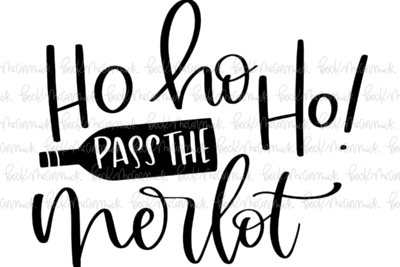 Ho ho Ho!
PASS THE
merlot